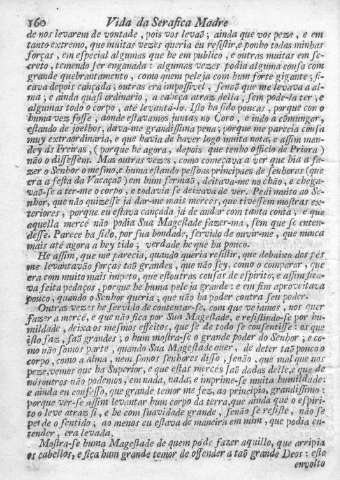 160 Vida da Serafica Madre
de nos levarem de vontade, pois vos levaõ; ainda que vos peze, e em
tanto extremo, que muitas vezes queria eu resistir, e ponho todas minhas
forças, em especial algumas que he em publico, e outras muitas em se-
creto, temendo ser enganada: algumas vezes podia alguma cousa com
grande quebrantamento, como quem peleja com hum forte gigante; fi-
cava depois cançada; outras era impossivel, senaõ que me levava a al-
ma; e ainda quasi ordinario, a cabeça atraz della, sem poder-la ter, e
algumas todo o corpo, até levantá-lo. Isto ha sido poucas, porque com o
huma vez fosse, donde estavamos juntas no Coro, e indo a cõmungar,
estando de joelhos, dava-me grandissima pena; porque me parecia cousa
muy extraordinaria, e que havia de haver logo muita nota, e assim man-
dey ás Freiras, (porque he agora, depois que tenho officio de Priora)
naõ o dissessem. Mas outras vezes, como começava a ver que hia a fa-
zer o Senhor o mesmo, e huma estando pessoas principaes de senhoras (que
era a festa da Vocaçaõ) em hum sermaõ, deitava-me no chaõ, e chega-
vaõ-se a ter-me o corpo, e todavia se deixava de ver. Pedi muito ao Se-
nhor, que naõ quizesse já dar-me mais merces, que tivessem mostras ex-
teriores, porque eu estava cançada já de andar com tanta conta, e que
aquella mercê naõ podia Sua Magestade fazer-ma, sem que se enten-
desse. Parece ha sido, por sua bondade, servido de ouvir-me, que nunca
mais até agora a hey tido; verdade he que ha pouco.
He assim, que me parecia, quando queria resistir, que debaixo dos pés
me levantavaõ forças taõ grandes, que naõ sey, como o comparar, que
era com muito mais impeto, que estoutras cousas de espirito; e assim fica-
va feita pedaços, porque he huma peleja grande: e em fim aproveitava
pouco, quando o Senhor queria; que naõ ha poder contra seu poder.
Outras vezes he servido de contentar-se, com que vejamos, nos quer
fazer a mercê, e que naõ fica por Sua Magestade, e resistindo-se por hu-
mildade, deixa os mesmos effeitos, que se de todo se consentisse: os que
isto faz, saõ grandes; o hum mostra-se o grande poder do Senhor, e co-
mo naõ somos parte, quando Sua Magestade quer, de deter taõ pouco o
corpo, como a alma, nem somos senhores disso, senaõ, que mal que nos
peze, vemos que ha Superior, e que estas merces saõ dadas delle, e que de
nós outros naõ podemos, em nada, nada, e imprime-se muita humildade:
e ainda eu confesso, que grande temor me fez, ao principio, grandissimo;
porque ver-se assim levantar hum corpo da terra, que ainda que o espiri-
to o leve atraz si, e he com suavidade grande, senaõ se resiste, naõ se
perde o sentido, ao menos eu estava de maneira em mim, que podia en-
tender, era levada.
Mostra-se huma Magestade de quem póde fazer aquillo, que arripia
os cabellos, e fica hum grande temor de offender a taõ grande Deos: este
envolto